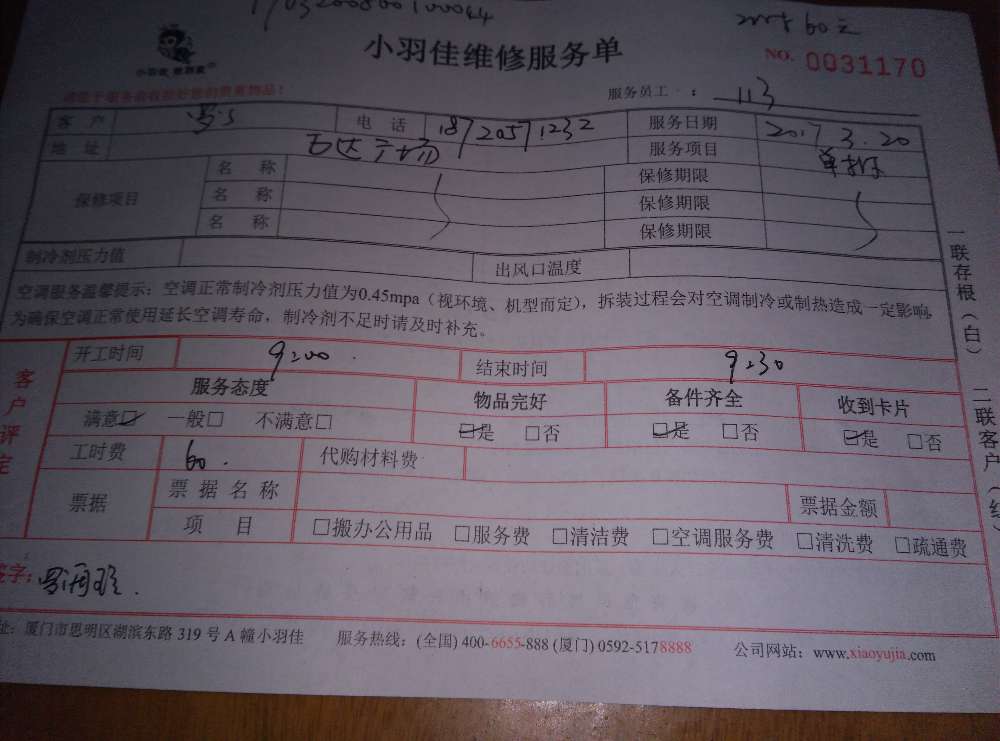 小羽佳维修服务单
NO. 0031170
服务员工: 113
客户 电话 18720571232 服务日期 2017.3.20
地址 万达广场 服务项目 单拆
保修项目 名称 保修期限
名称 保修期限
名称 保修期限
制冷剂压力值 出风口温度
空调服务温馨提示：空调正常制冷剂压力值为0.45mpa（视环境、机型而定），拆装过程会对空调制冷或制热造成一定影响,
为确保空调正常使用延长空调寿命，制冷剂不足时请及时补充。
开工时间 9:00 结束时间 9:30
客户评定
服务态度 物品完好 备件齐全 收到卡片
满意☑ 一般□ 不满意□ ☑是 □否 ☑是 □否 ☑是 □否
工时费 60. 代购材料费
票据 票据名称 票据金额
项目 □搬办公用品 □服务费 □清洁费 □空调服务费 □清洗费 □疏通费
签字:
址：厦门市思明区湖滨东路 319 号 A 幢小羽佳 服务热线：(全国) 400-6655-888 (厦门) 0592-5178888 公司网站：www.xiaoyujia.com
一联存根（白） 二联客户（红